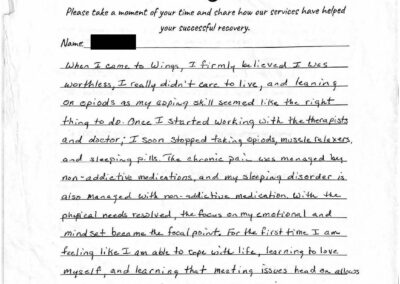 Please take a moment of your time and share how our services have helped
your successful recovery.
Name:
When I came to Wings, I firmly believed I was
worthless, I really didn't care to live, and leaning
on opiods as my coping skill seemed like the right
thing to do. Once I started working with the therapists
and doctor; I soon stopped taking opiods, muscle relaxers,
and sleeping pills. The chronic pain was managed by
non-addictive medications, and my sleeping disorder is
also managed with non-addictive medication. With the
physical needs resolved, the focus on my emotional and
mindset became the focal point. For the first time I am
feeling like I am able to cope with life, learning to love
myself, and learning that meeting issues head on allows